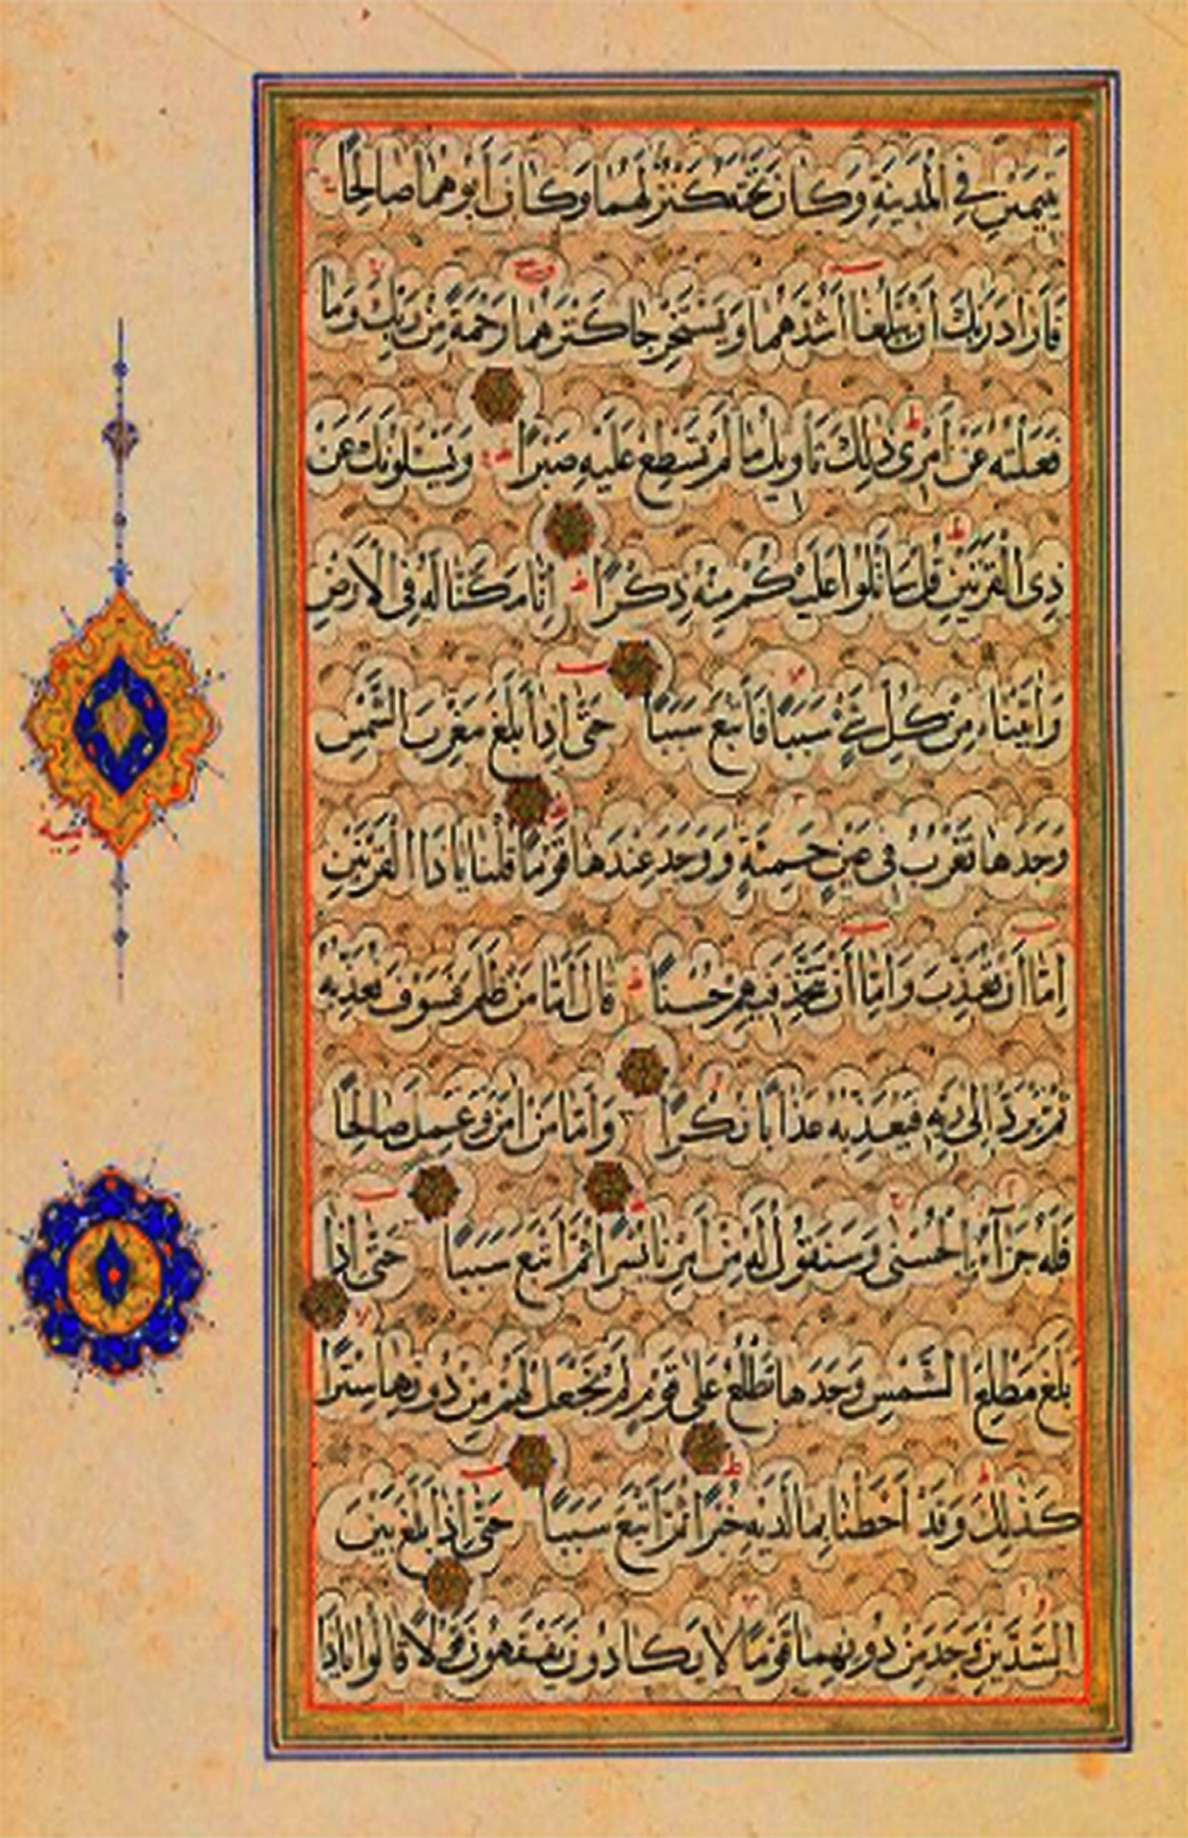 يَتِيمَيْنِ فِي الْمَدِينَةِ وَكَانَ تَحْتَهُ كَنْزٌ لَهُمَا وَكَانَ أَبُوهُمَا صَالِحًا
فَأَرَادَ رَبُّكَ أَنْ يَبْلُغَا أَشُدَّهُمَا وَيَسْتَخْرِجَا كَنْزَهُمَا رَحْمَةً مِنْ رَبِّكَ وَمَا
فَعَلْتُهُ عَنْ أَمْرِى ذٰلِكَ تَأْوِيلُ مَا لَمْ تَسْطِعْ عَلَيْهِ صَبْرًا وَيَسْـَٔلُونَكَ عَنْ
ذِى الْقَرْنَيْنِ قُلْ سَأَتْلُوا عَلَيْكُمْ مِنْهُ ذِكْرًا إِنَّا مَكَّنَّا لَهُ فِى الْأَرْضِ
وَاٰتَيْنَاهُ مِنْ كُلِّ شَيْءٍ سَبَبًا فَأَتْبَعَ سَبَبًا حَتَّى إِذَا بَلَغَ مَغْرِبَ الشَّمْسِ
وَجَدَهَا تَغْرُبُ فِى عَيْنٍ حَمِئَةٍ وَوَجَدَ عِنْدَهَا قَوْمًا قُلْنَا يَا ذَا الْقَرْنَيْنِ
إِمَّا أَنْ تُعَذِّبَ وَإِمَّا أَنْ تَتَّخِذَ فِيهِمْ حُسْنًا قَالَ أَمَّا مَنْ ظَلَمَ فَسَوْفَ نُعَذِّبُهُ
ثُمَّ يُرَدُّ إِلَى رَبِّهِ فَيُعَذِّبُهُ عَذَابًا نُكْرًا وَأَمَّا مَنْ اٰمَنَ وَعَمِلَ صَالِحًا
فَلَهُ جَزَآءً الْحُسْنَى وَسَنَقُولُ لَهُ مِنْ أَمْرِنَا يُسْرًا ثُمَّ أَتْبَعَ سَبَبًا حَتَّى إِذَا
بَلَغَ مَطْلِعَ الشَّمْسِ وَجَدَهَا تَطْلُعُ عَلَى قَوْمٍ لَمْ نَجْعَلْ لَهُمْ مِنْ دُونِهَا سِتْرًا
كَذٰلِكَ وَقَدْ أَحَطْنَا بِمَا لَدَيْهِ خُبْرًا ثُمَّ أَتْبَعَ سَبَبًا حَتَّى إِذَا بَلَغَ بَيْنَ
السَّدَّيْنِ وَجَدَ مِنْ دُونِهِمَا قَوْمًا لَا يَكَادُونَ يَفْقَهُونَ قَوْلًا قَالُوا يَا ذَا